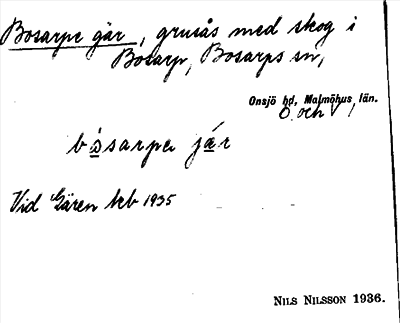 Bosarpe gär, grusås med skog i
Bosarp, Bosarps sn,
Onsjö hd, Malmöhus län.
Ö. och V
bo̲sarpe jä̲r
Vid Gären kb 1935
NILS NILSSON 1936.